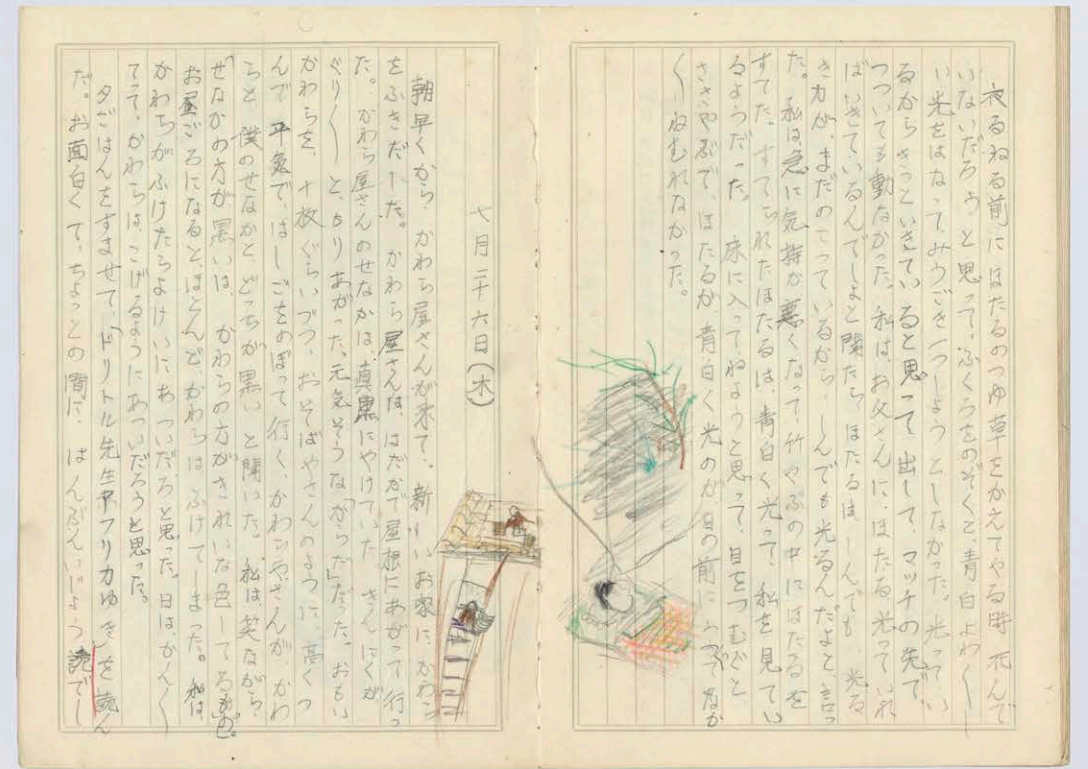 夜るねる前にほたるのつゆ草をかえてやる時死んで
いないだろうと思って、ふくろをのぞくと、青白よわ〱し
い光をはなってみうごき一つしようとしなかった。光ってい
るからきっといきていると思って、出して、マッチの先で、
つついても動なかった。私は、お父さんに、ほたる光っていれ
ばいきているんでしょと聞たら、ほたるは、しんでも 光る
きかが、まだのこっているから、しんでも光るんだよと、言っ
た。私は、急に気持が悪くなって、竹やぶの中にほたるを
すてた。すてられたほたるは、青白く光って、私を見てい
るようだった。床に入ってねようと思って、目をつむぐと、
ささやぶで、ほたるが、青白く光のが目の前に なか
〱ねむれなかった。
七月二十六日(木)
朝早くから、かわら屋さんが来て、新しいお家に、かわら
をふきだした。かわら屋さんは、はだかで屋根にあがって行っ
た。かわら屋さんのせなかは、真黒にやけていた。きんにくが
ぐり〱と、もりあがった、元気そうな「からだ」だった。おもい
かわらを、十枚ぐらいづつ、おそばやさんのように、高くつ
んで、平気で、はしごをのぼって行く、かわらやさんが、かわ
らと、僕のせなかと、どっちが黒いと聞いた。私は、笑ながら、
せなかの方が黒いは、かわらの方がきれいな色してるもの。
お昼ごろになると、ほとんど、かわらは、ふけてしまった。私は、
かわらがふけたらよけいにあついだろと思った。日は、かん〱
てって、かわらは、こげるようにあついだろうと思った。
夕ごはんをすませて、「ドリトル先生アフリカゆき」を読ん
だ。お面白くて、ちょっとの間に、はんぶんいじょう読でし